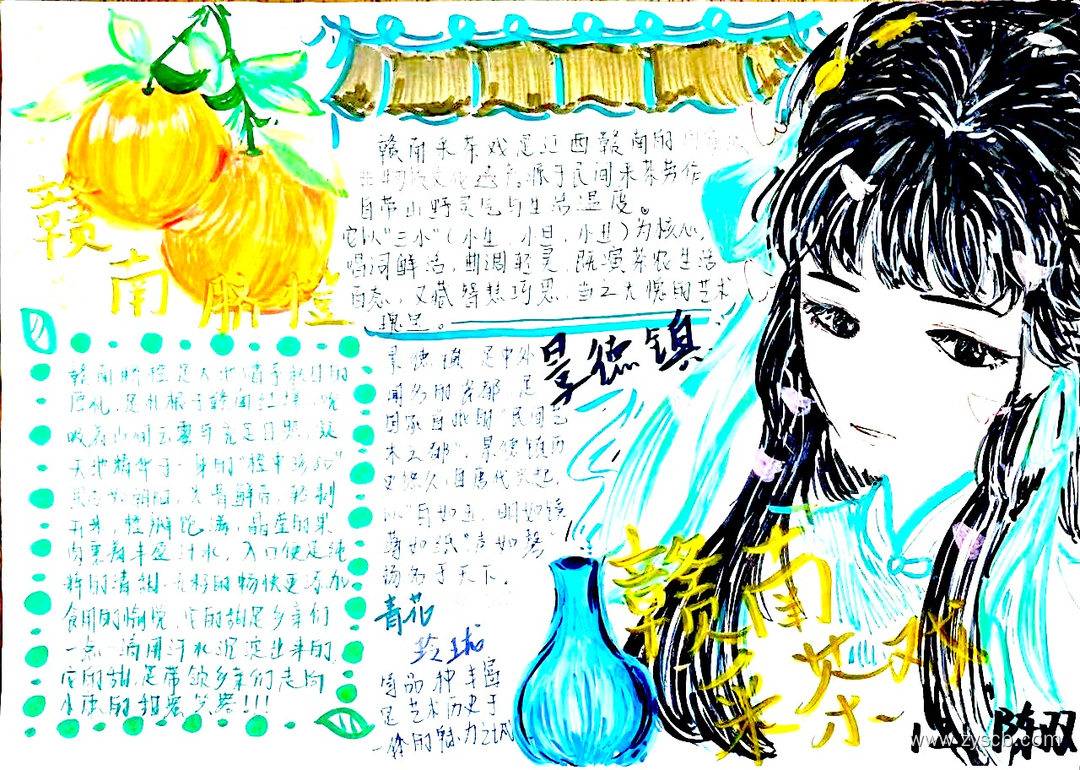 赣南脐橙
赣南采茶戏是江西赣南的
源于民间采茶劳作
自带山野灵气与生活温度。
它以“三小”(小生、小旦、小丑)为核心,
唱词鲜活,曲调轻灵,既演茶农生活
百态,又藏智慧巧思,当之无愧的艺术
瑰宝。
景德镇
赣南脐橙是大地馈予秋日的
厚礼,是扎根于赣南红壤,吮
吸着山间云雾与充足日照,凝
天地精华于一身的“橙中
开来,橙瓣饱满,晶莹的果
肉裹着丰盈汁水,入口便是纯
粹的清甜,无籽的畅快更添加
食用的愉悦,它的甜是乡亲们
一点一滴用汗水沉淀出来的
它的甜,是带领乡亲们走向
小康的甜蜜
景德镇是中外
闻名的瓷都,是
国家首批的“民间艺
术之都”,景德镇历
史悠久,自唐代兴起,
以“白如玉,明如镜
薄如纸,声如磬”
扬名于天下。
青花
玲珑
陶品种丰富
是艺术历史于
一体的魅力之城
赣南
采茶戏
www.zyscb.com